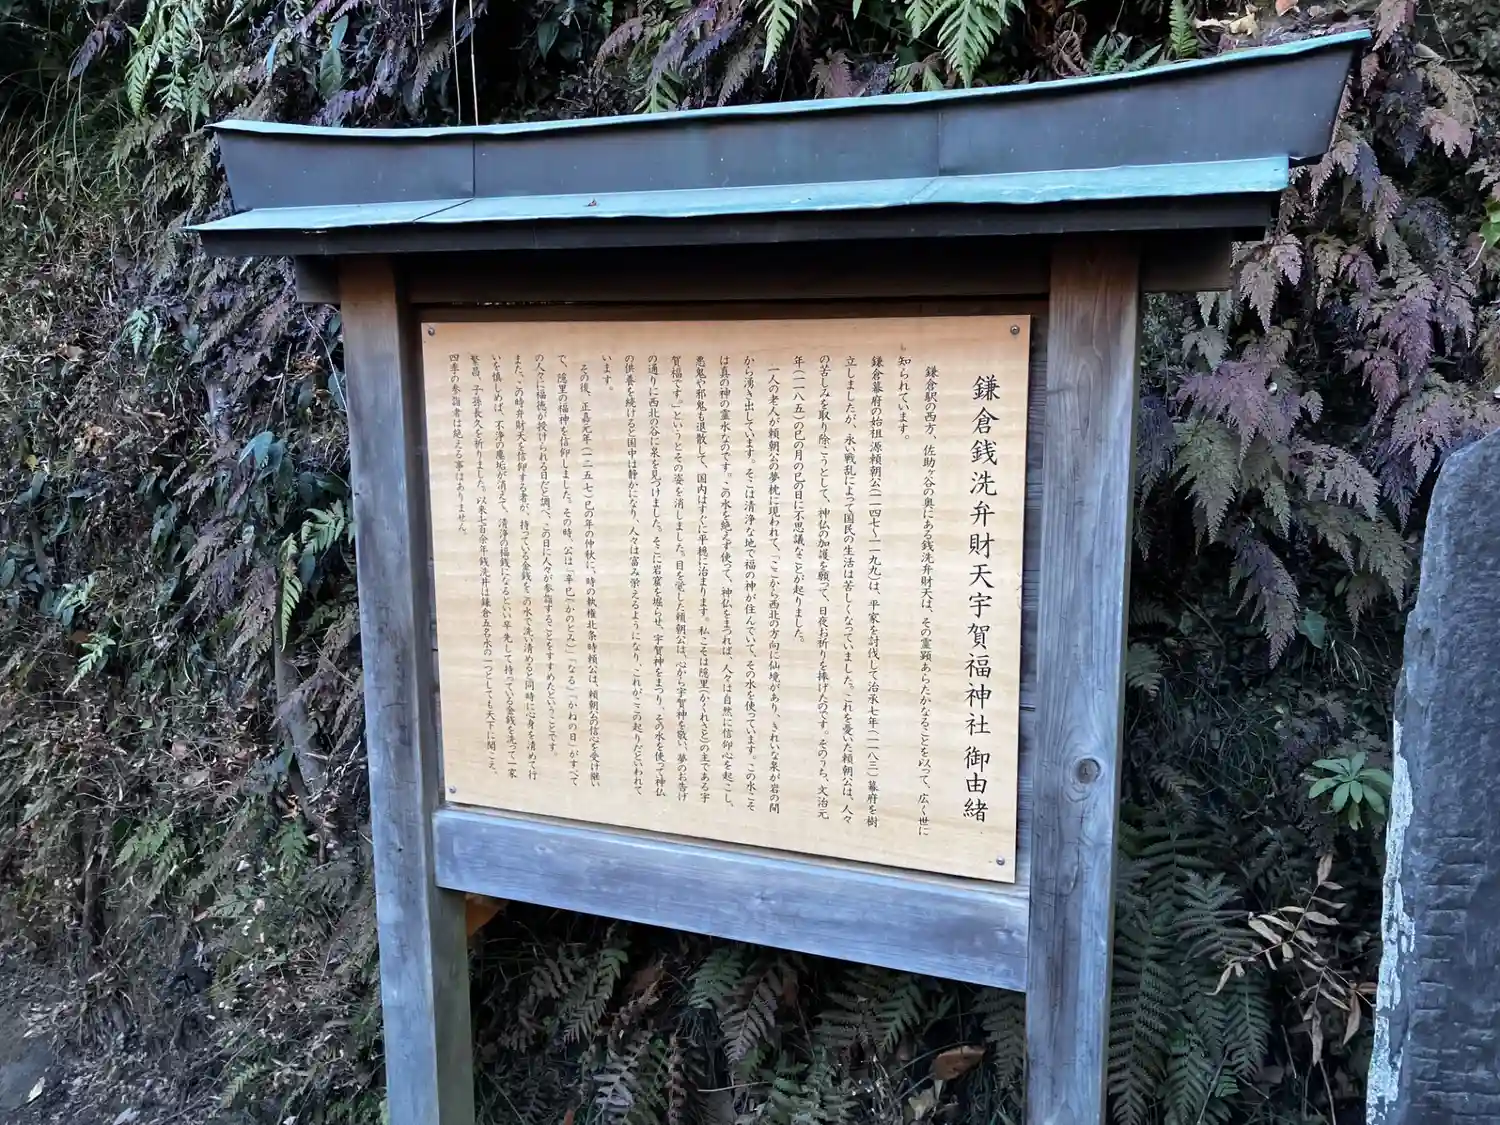 鎌倉銭洗弁財天宇賀福神社 御由緒
鎌倉駅の西方、佐助ヶ谷の奥にある銭洗弁財天は、その霊顕あらたかなることを以って、広く世に
知られています。
鎌倉幕府の始祖源頼朝公(一一四七〜一一九九)は、平家を討伐して治承七年(一一八三)幕府を樹
立しましたが、永い戦乱によって国民の生活は苦しくなっていました。これを憂いた頼朝公は、人々
の苦しみを取り除こうとして、神仏の加護を願って、日夜お祈りを捧げたのです。そのうち、文治元
年(一一八五)の巳の月の巳の日に不思議なことが起りました。
一人の老人が頼朝公の夢枕に現われて、「ここから西北の方向に仙境があり、きれいな泉が岩の間
から湧き出しています。そこは清浄な地で福の神が住んでいて、その水を使っています。この水こそ
は真の神の霊水なのです。この水を絶えず使って、神仏をまつれば、人々は自然に信仰心を起こし、
悪鬼や邪鬼も退散して、国内はすぐに平穏に治まります。私こそは隠里(かくれざと)の主である宇
賀福です。」というとその姿を消しました。目を覚した頼朝公は、心から宇賀神を敬い、夢のお告げ
の通りに西北の谷に泉を見つけました。そこに岩窟を堀らせ、宇賀神をまつり、その水を使って神仏
の供養を続けると国中は静かになり、人々は富み栄えるようになり、これがここの起りだといわれて
います。
その後、正嘉元年(一二五七)巳の年の仲秋に、時の執権北条時頼公は、頼朝公の信心を受け継い
で、隠里の福神を信仰しました。その時、公は「辛巳」(かのとみ)「なる」「かねの日」がすべて
の人々に福徳が授けられる日だと調べ、この日に人々が参詣することをすすめたということです。
また、この時弁財天を信仰する者が、持っている金銭をこの水で洗い清めると同時に心身を清めて行
いを慎しめば、不浄の塵垢が消えて、清浄の福銭になるといい卒先して持っている金銭を洗って一家
繁昌、子孫長久を祈りました。以来七百余年銭洗井は鎌倉五名水の一つとしても天下に聞こえ、
四季の参詣者は絶える事はありません。